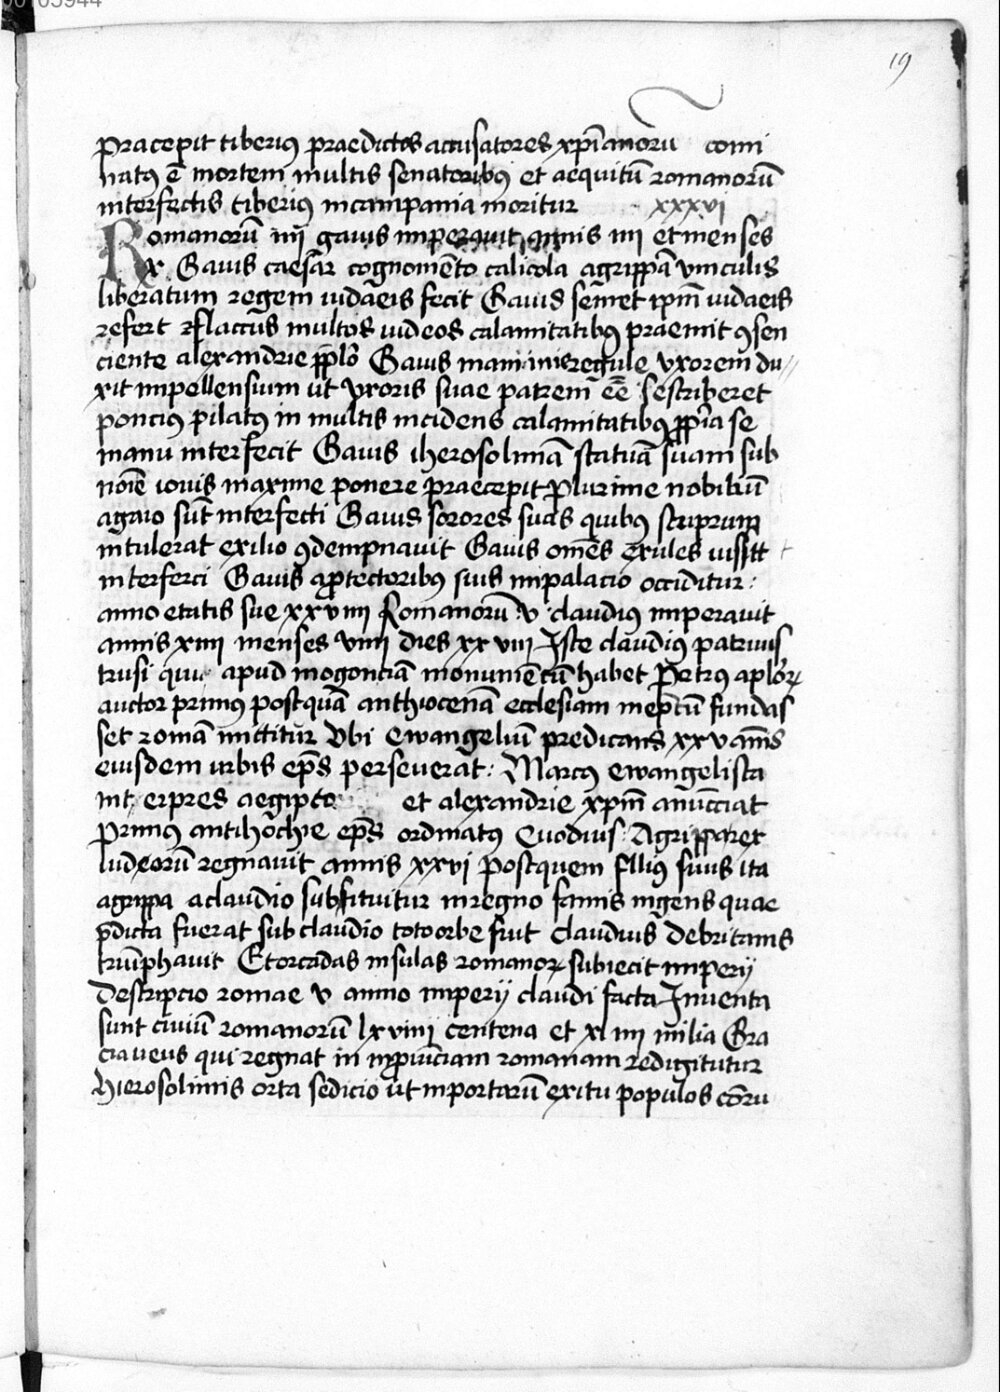 19
Pracepit tiberiꝰ praedictos accusatores xp̄ianorū comi
natꝰ ē mortem multis senatoribꝰ et aequitū romanorū
interfectis tiberiꝰ incampania moritur xxxvi
Romanorū iiij gaius imperauit annis iiij et menses
x. Gaius caesar cognomēto calicola agrippā vinculis
liberatum regem iudaeis fecit Gaius semet ipm̄ iudaeis
refert flaccus multos iudeos calamitatibꝰ praemit ꝯsen
ciente alexandrie pplō Gaius regule vxorem du
xit impellensium ut vxoris suae patrem eē sescriberet
poncius pilatꝰ in multis incidens calamitatibꝰ ꝓpria se
manu interfecit Gaius iherosolimā statuā suam sub
noīe iouis maxime ponere praecepit Plurime nobiliū
agaio sūt interfecti Gaius sorores suas quibꝰ struprum
intulerat exilio ꝯdempnauit Gaius omēs exules iussitt
interferci Gaius aꝓtectoribꝰ suis inpalacio occiditur:
anno etatis sue xxviiii Romanorū v claudius imperauit
annis xiiii menses viiii dies xxviii Iste claudiꝰ patruus
trusi qui apud mogonciā monumētū habet Petrus aplōꝝ
auctor primus postquā anthiocenā ecclesiam ineptū fundas
set romā mittitur Vbi ewangeliū predicans xxv annis
eiusdem urbis ep̄s perseuerat: Marcꝰ ewangelista
interpres aegipto et alexandrie xpm̄ anunciat
Primus antihochie ep̄s ordinatꝰ Euodius: Agrippa rex
Iudeorū regnauit annis xxvi postquem filiꝰ suus ita
agrippa aclaudio substituitur inregno famis ingens quae
p̄dicta fuerat sub claudio toto orbe fuit claudius debritanis
triūphauit Et orcadas insulas romanoꝝ subiecit imperij
Descripcio romae v anno imperij claudi facta Inuenta
sunt ciuiū romanorū lxviiii centena et xl iiii milia Gra
cia ueus qui regnat in inꝓuinciam romanam redigitutur
Hierosolimis orta sedicio ut inportarū exitu populos cōru